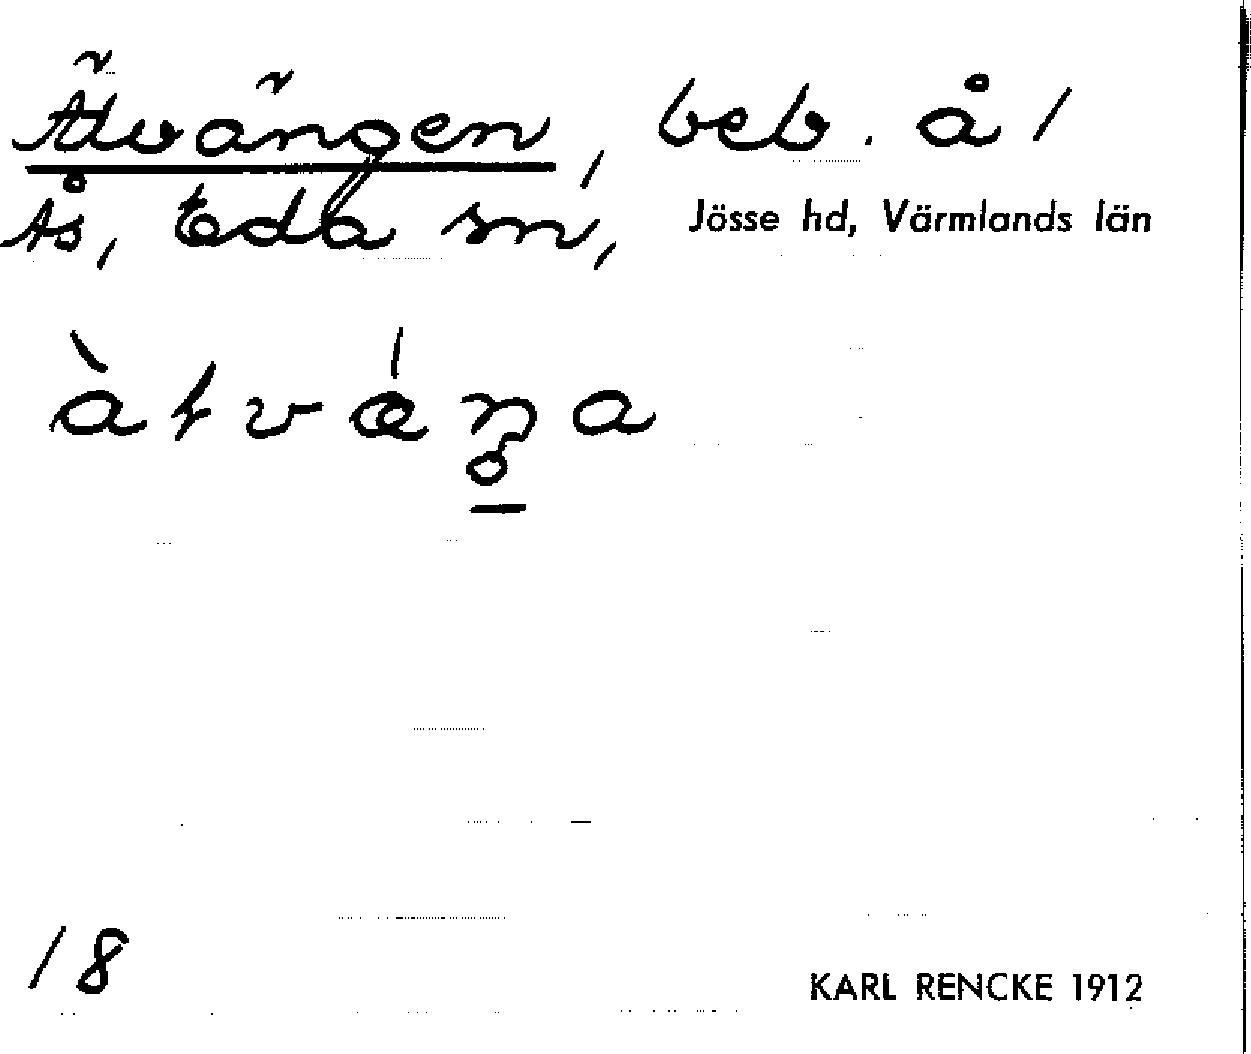 Älvängen, beb. å 1
Ås, Eda sn, Jösse hd, Värmlands län
18
KARL RENCKE 1912